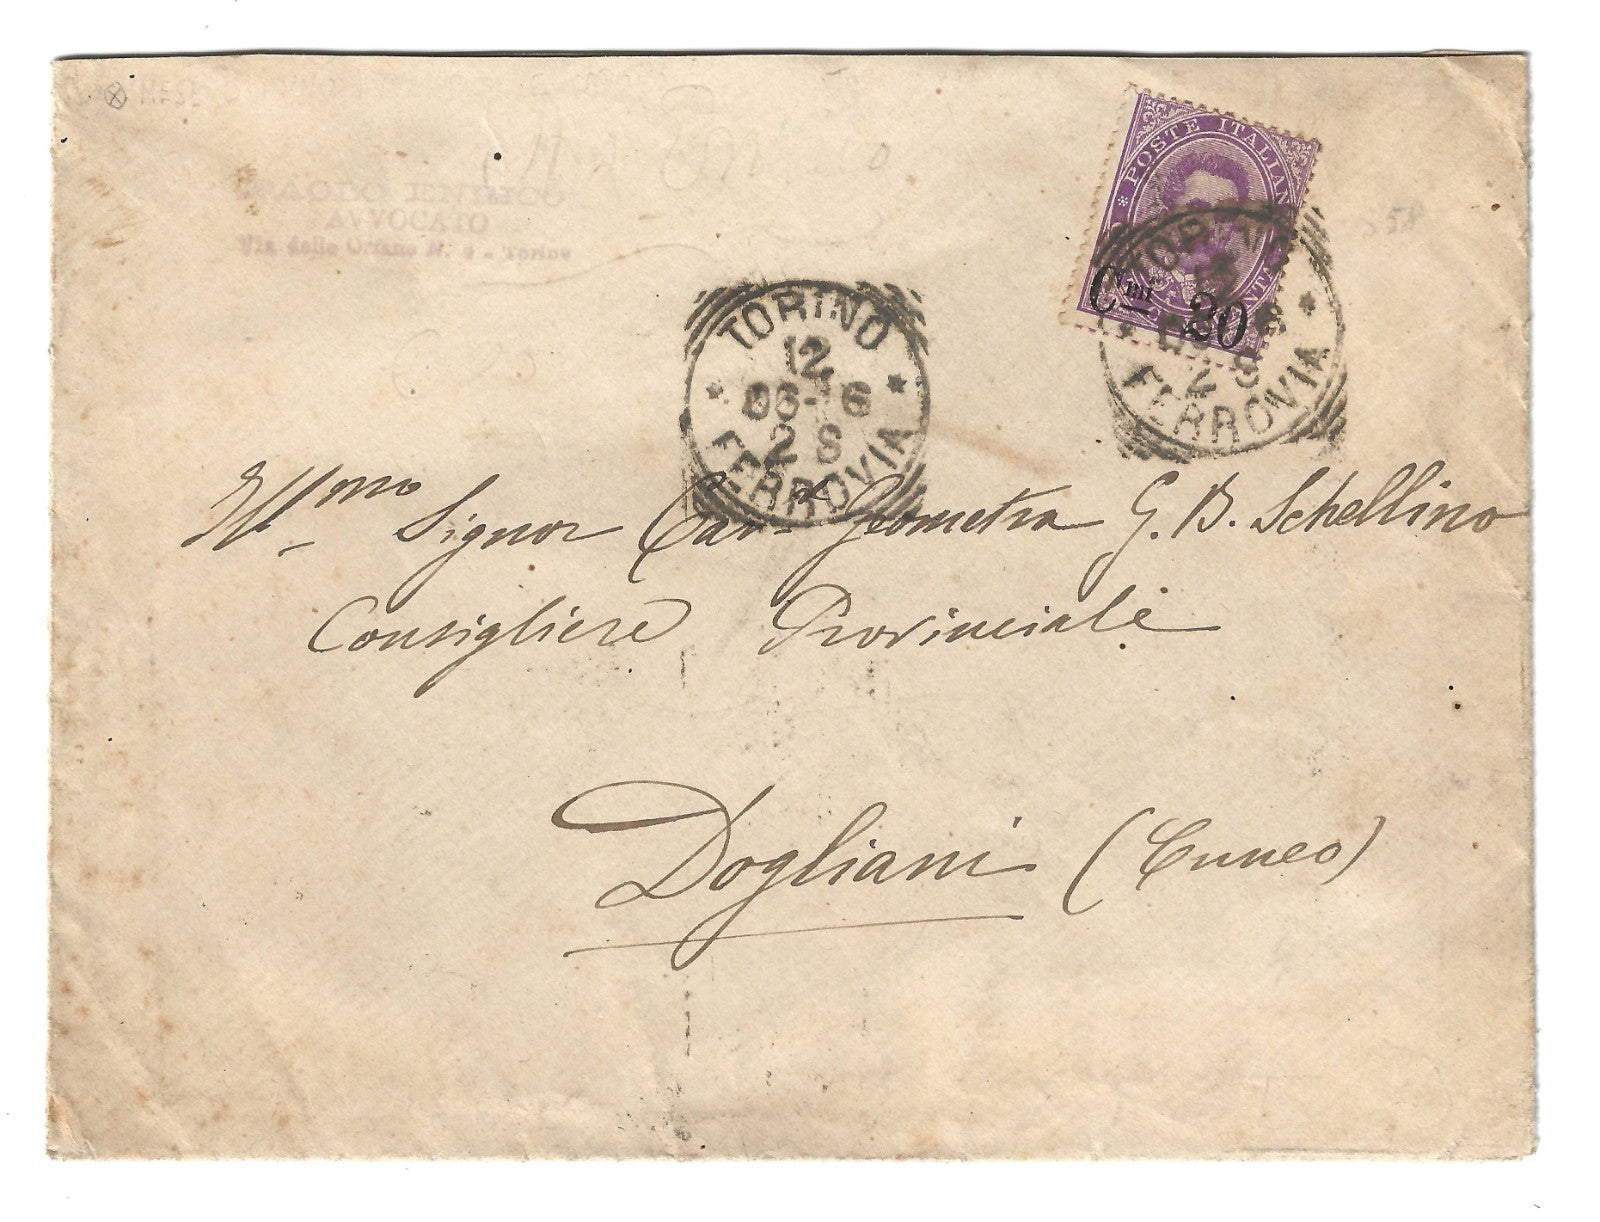 PAOLO ENRICO
AVVOCATO
Via delle Orfane N. - Torino
58
POSTE ITALIANE
Cmi 20
TORINO
FERROVIA
TORINO
12
96-6
2 S
FERROVIA
Ill.mo Signor Cav. Geometra G. B. Schellino
Consigliere Provinciale
Dogliani (Cuneo)